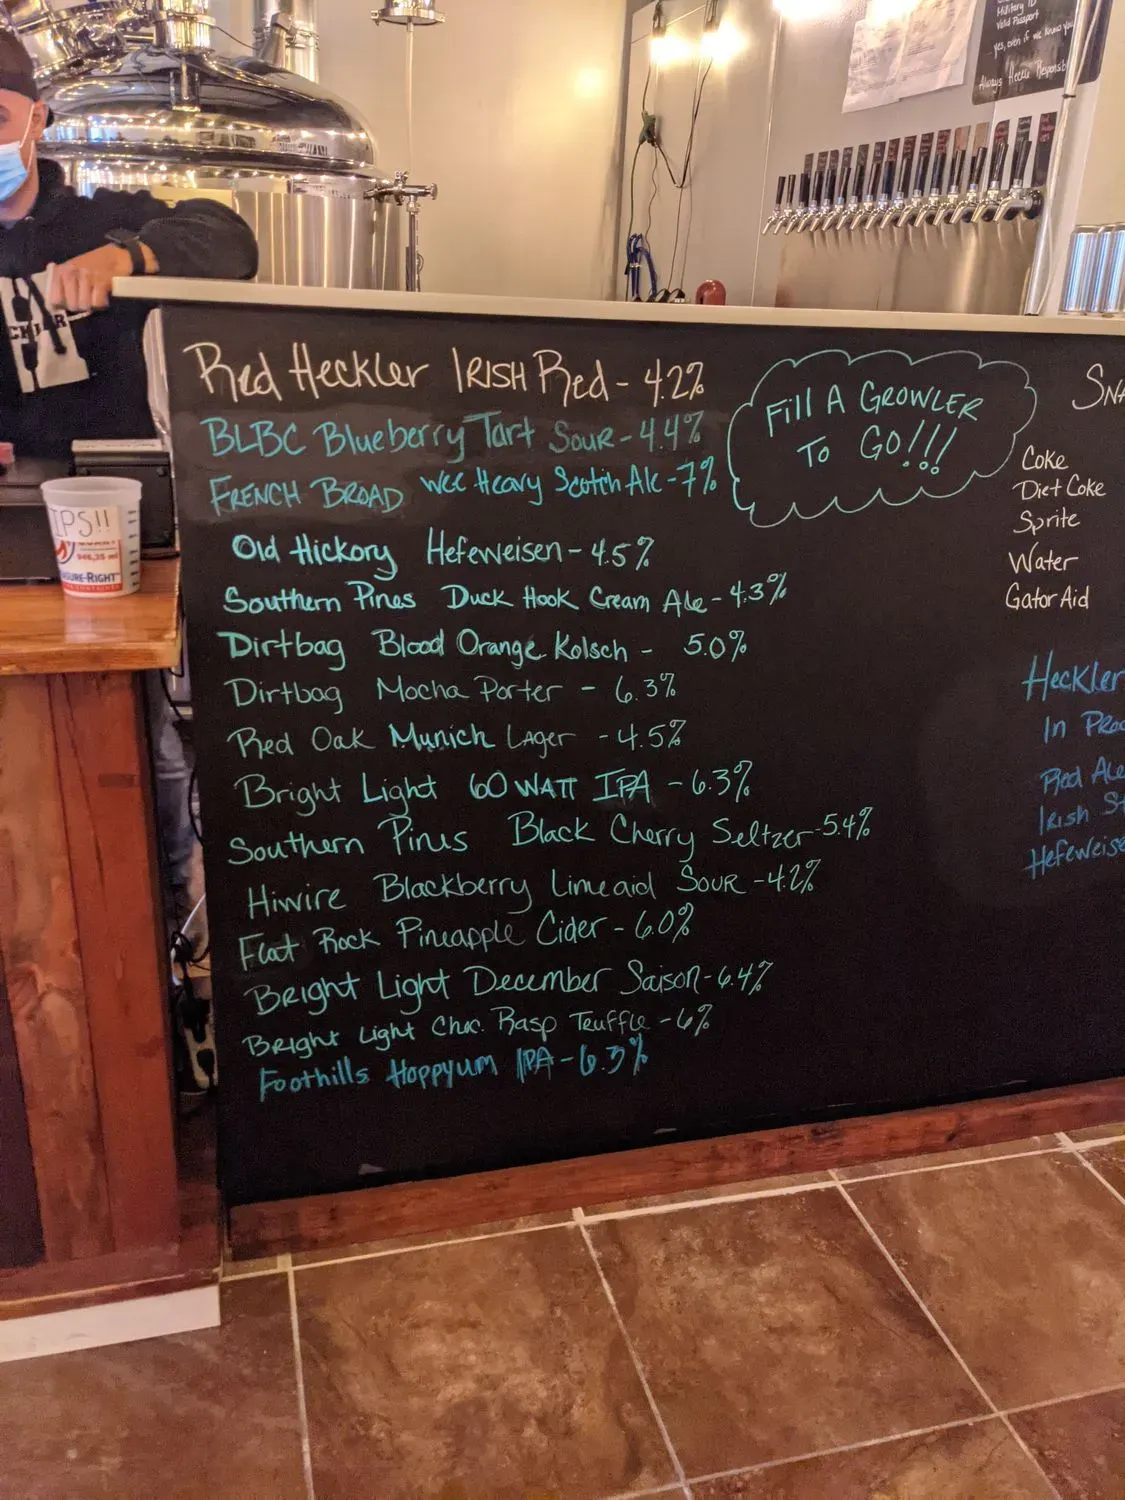 Military ID
Valid Passport
yes, even if we know you
Always Heckle Responsib
Red Heckler Irish Red - 4.2%
BLBC Blueberry Tart Sour - 4.4%
French Broad Wee Heavy Scotch Ale - 7%
Old Hickory Hefeweisen - 4.5%
Southern Pines Duck Hook Cream Ale - 4.3%
Dirtbag Blood Orange Kolsch - 5.0%
Dirtbag Mocha Porter - 6.3%
Red Oak Munich Lager - 4.5%
Bright Light 60 Watt IPA - 6.3%
Southern Pines Black Cherry Seltzer - 5.4%
Hiwire Blackberry Limeaid Sour - 4.2%
Flat Rock Pineapple Cider - 6.0%
Bright Light December Saison - 6.4%
Bright Light Choc. Rasp Truffle - 6%
Foothills Hoppyum IPA - 6.3%
Fill A Growler
To Go!!!
Sna
Coke
Diet Coke
Sprite
Water
Gator Aid
Heckler
In Proc
Red Ale
Irish St
Hefeweise
IPS!!
946,35 ml
SURE-RIGHT